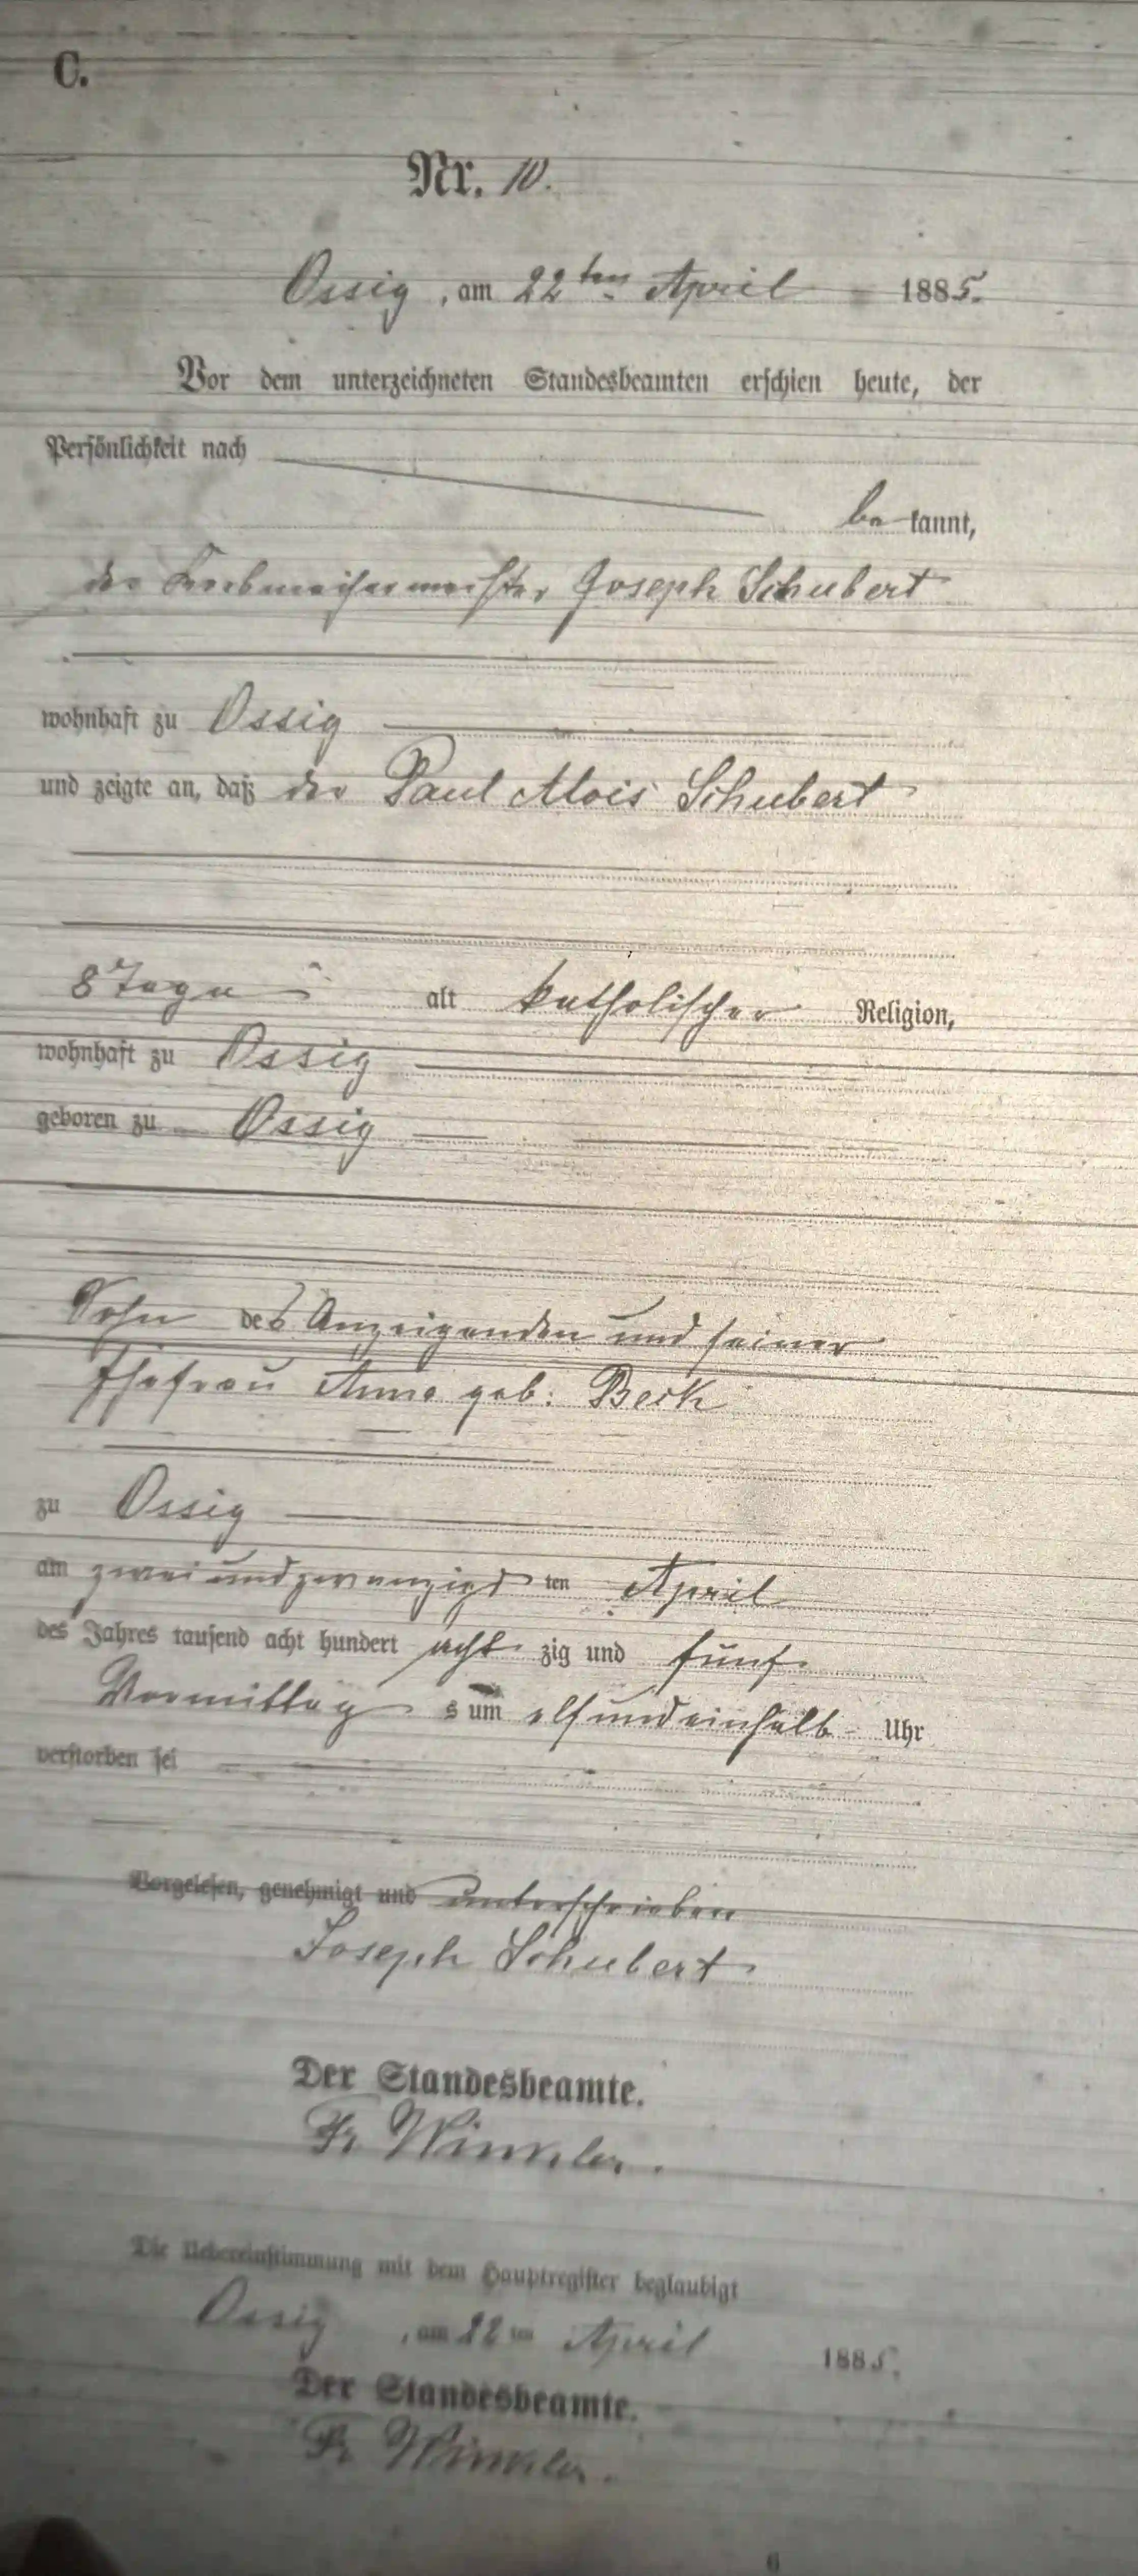 C.
Nr. 10.
Ossig, am 22ten April 1885.
Vor dem unterzeichneten Standesbeamten erschien heute, der
Persönlichkeit nach
be kannt,
der Joseph Schubert
wohnhaft zu Ossig
und zeigte an, daß der Paul Alois Schubert
8 Tage alt katholischer Religion,
wohnhaft zu Ossig
geboren zu Ossig
Sohn des Anzeigenden und seiner
Ehefrau Anna geb: Beck
zu Ossig
am zwei und zwanzigs ten April
des Jahres tausend acht hundert acht zig und fünf
Vormittag s um elf und einhalb Uhr
verstorben sei
Vorgelesen, genehmigt und unterschrieben
Joseph Schubert
Der Standesbeamte.
Fr Winkler.
Die Uebereinstimmung mit dem Hauptregister beglaubigt
Ossig, am 22 ten April 1885.
Der Standesbeamte.
Fr Winkler.
6